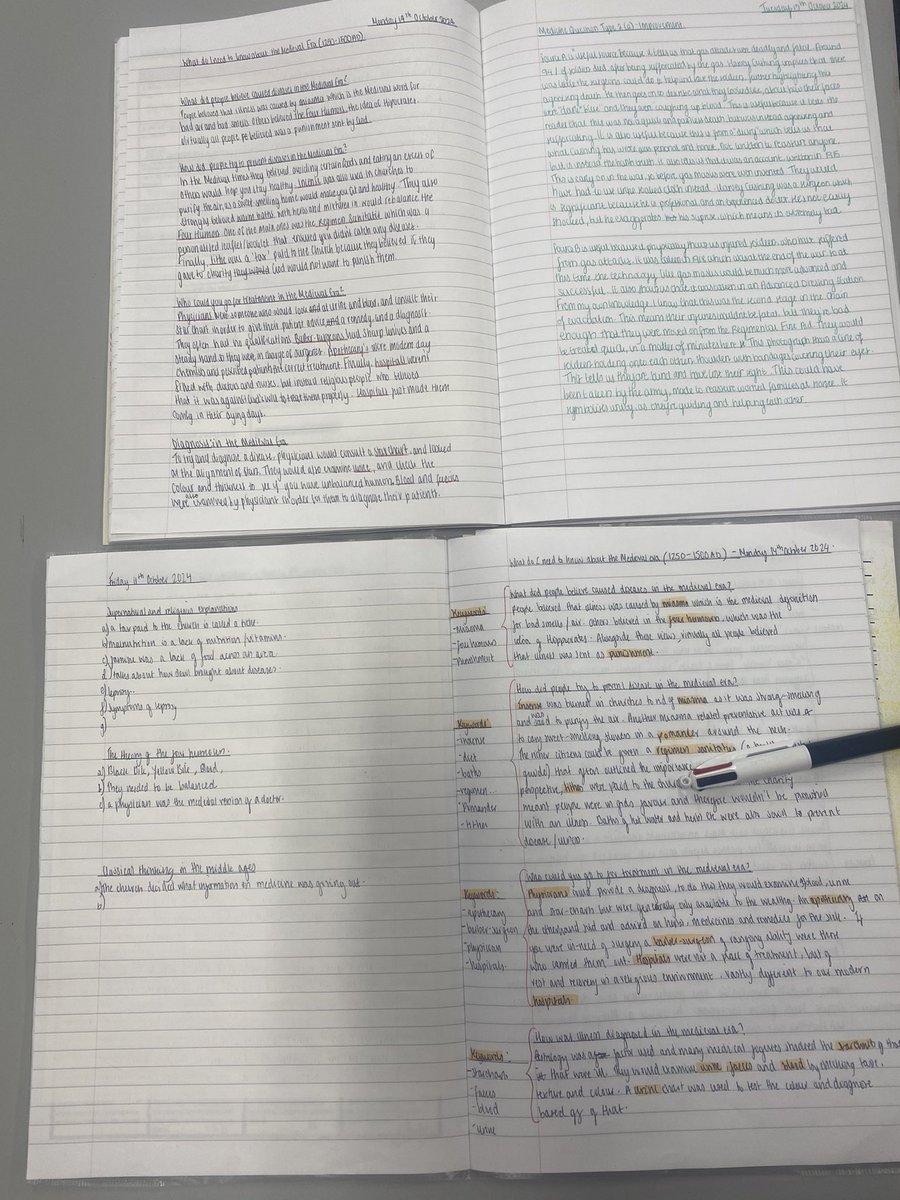 Monday 14th October 2024
What do I need to know about the Medieval Era (1250-1500AD)
What did people believe caused diseases in the Medieval Era?
People believed that illness was caused by miasma which is the Medieval word for
bad air and bad smells. Others believed The Four Humors, the idea of Hipocrates.
Virtually all people believed was a punishment sent by God.
How did people try to prevent diseases in the Medieval Era?
In the Medieval times they believed avoiding certain foods and eating an excess of
others would help you stay healthy. Incense was also used in churches to
purify the air, as a sweet smelling home would make you fit and healthy. They also
strongly believed warm baths with herbs and mixtures in would rebalance the
Four Humors. One of the main ones was the Regimen Sanitatis which was a
personalised leaflet/booklet that ensured you didn't catch any disease.
Finally, tithe was a 'tax' paid to the Church because they believed if they
gave to charity God would not want to punish them.
Who could you go for treatment in the Medieval Era?
Physicians were someone who would look at urine and blood, and consult their
star chart in order to give their patient advice and a remedy, and a diagnosis.
They often had no qualifications. Barber-surgeons had sharp knives and a
steady hand so they were in charge of surgeries. Apothecary's were modern day
chemists and prescribed patients the correct treatment. Finally, hospitals weren't
filled with doctors and nurses, but instead religious people, who believed
that it was against God's will to treat them properly. Hospitals just made them
comfy in their dying days.
Diagnosis in the Medieval Era
To try and diagnose a disease, physicians would consult a star chart, and looked
at the alignment of stars. They would also examine urine, and check the
colour and thickness to see if you have unbalanced humors. Blood and faeces
were also examined by physicians in order for them to diagnose their patients.
Tuesday October 2024
Medicine Question Type 2(a): Improvement
Source A is useful source because it tells us that gas attacks were deadly and fatal. Around
of soldiers died, after being suffocated by the gas. Harvey Cushing implies that there
was little the surgeons could do to help and save the soldiers, further highlighting this
agonising death. He then goes on to describe what they looked like, about how their faces
were "dark blue" and they were coughing up blood. This is useful because it tells the
reader that this was not a quick and painless death but was instead agonising and
suffocating. It is also useful because this is from a 'diary' which tells us that
what Cushing has wrote was personal and honest, not written to reassure anyone
but is instead the harsh truth. It also tells us that it was an account written in 1915.
This is early on in the war, so before gas masks were even invented. They would
have had to use urine soaked cloth instead. Harvey Cushing was a surgeon which
is significant because he is professional and an experienced doctor. He's not easily
shocked, but he exaggerates his surprise, which means its extremely bad.
Source B is useful because physically shows us injured soldiers, who have suffered
from gas attacks. It was taken in 1918 which was at the end of the war so at
this time the technology like gas masks would be much more advanced and
successful. It also shows us that it was taken in an Advanced Dressing Station
From my own knowledge I know that this was the second stage in the chain
of evacuation. This means their injuries wouldn't be fatal, but they're bad
enough that they were moved on from the Regimental First Aid. They would
be treated quick, in a matter of minutes here. This photograph shows a line of
soldiers holding onto each others shoulders with bandages covering their eyes.
This tells us they are blind and have lost their sight. This could have
been taken by the army, made to reassure worried families at home. It
symbolises unity, as they're guiding and helping each other.
Friday 11th October 2024
Supernatural and religious explanations
a) a tax paid to the church is called a tithe.
b) malnutrition is a lack of nutrition/vitamins.
c) famine was a lack of food across an area.
d) talks about how devil brought about diseases.
e) leprosy.
f) symptoms of leprosy
g)
The theory of the four humours.
a) Black Bile, Yellow Bile, Blood,
b) They needed to be balanced
c) a physician was the medieval version of a doctor.
Classical thinking in the middle ages
a) the church decided what information on medicine was giving out.
b)
What do I need to know about the Medieval era (1250-1500AD) - Monday 14th October 2024.
Keywords:
- miasma
- four humours
- punishment
What did people believe caused diseases in the medieval era?
people believed that illness was caused by miasma which is the medieval definition
for bad smells/air. others believed in the four humours, which was the
idea of Hippocrates. Alongside these views, virtually all people believed
that illness was sent as punishment.
Keywords:
- incense
- diet
- baths
- regimen...
- Pomander
- tithes
How did people try to prevent disease in the medieval era?
Incense was burned in churches to rid of miasma as it was strong-smelling
and was said to purify the air. Another miasma related preventative act was
to carry sweet-smelling flowers in a pomander around the neck.
The richer citizens could be given a regimen sanitatis (a
guide) that often outlined the importance
perspective, tithes were paid to the church charity
meant people were in gods favour and therefore wouldn't be punished
with an illness. Baths of hot water and herbs etc were also said to prevent
disease/illness.
Keywords:
- apothecary
- barber-surgeon
- physician
- hospitals.
Who could you go to for treatment in the medieval era?
Physicians could provide a diagnosis, to do this they would examine blood, urine
and star-charts but were generally only available to the wealthy. An apothecary on
the otherhand sold and advised on herbs, medicines and remedies for the sick. If
you were in-need of surgery a barber-surgeon of varying ability were those
who carried them out. Hospitals were not a place of treatment, but of
rest and recovery in a religious environment, vastly different to our modern
hospitals.
Keywords:
- starchart
- faeces
- blood
- urine
How was illness diagnosed in the medieval era?
Astrology was often used and many medical figures studied the starchart of those
that were ill. They would examine urine, faeces and blood by checking taste,
texture and colour. A urine chart was used to test the colour and diagnose
based off of that.